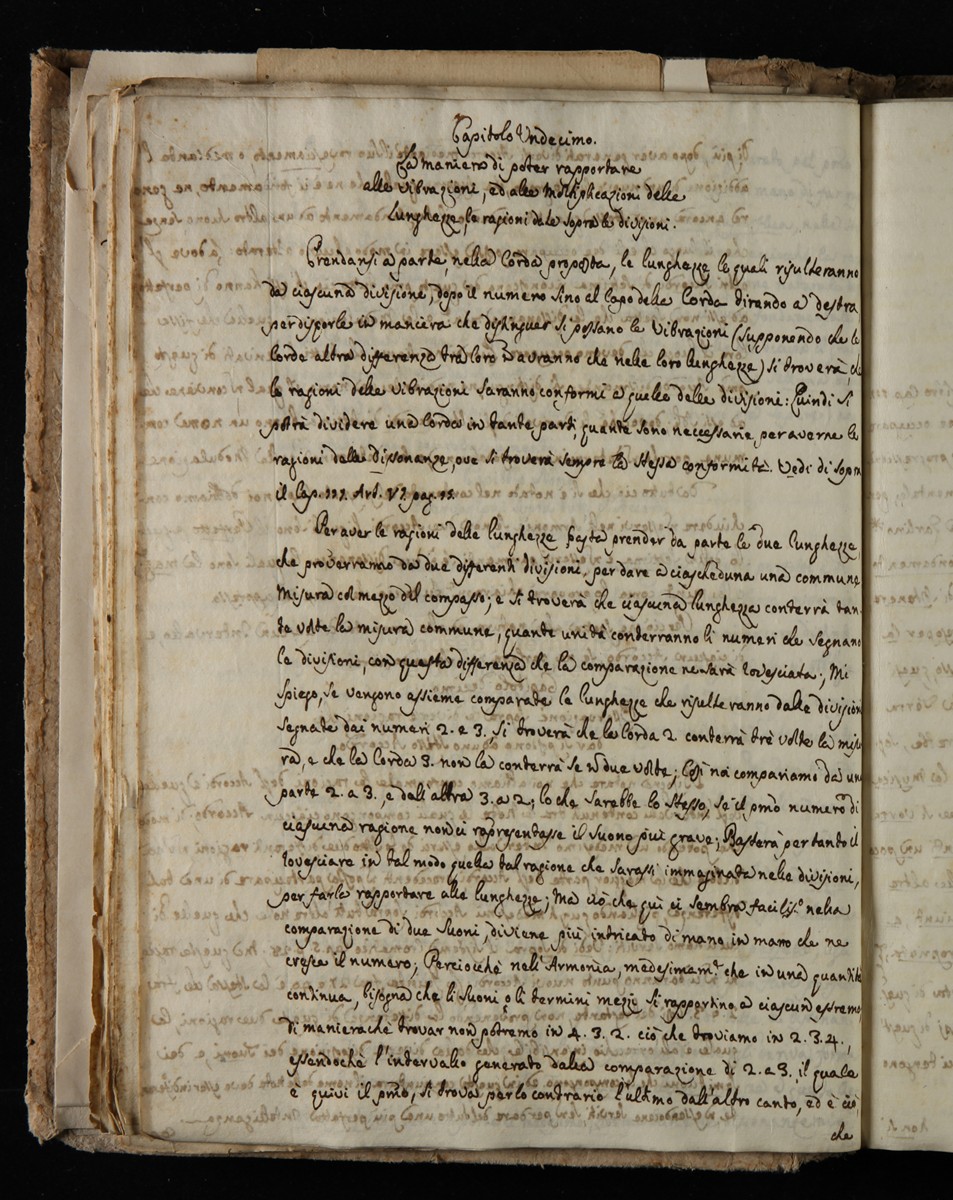 Capitolo Undecimo.
La maniera di poter rapportare
alle vibrazioni, ed alle Moltiplicazioni delle
Lunghezze, le ragioni date sopra le divisioni.
Prendansi a parte, nella Corda proposta, le lunghezze le quali risulteranno
da ciascuna divisione, dopo il numero sino al Capo della Corda tirando a destra
per disporle in maniera che distinguer si possano le Vibrazioni (supponendo che le
Corde altra differenza tra loro avranno che nelle loro lunghezze) si troverà, che
le ragioni delle vibrazioni saranno conformi a quelle delle divisioni: Quindi si
potrà dividere una Corda in tante parti, quante sono neccessarie, per averne le
ragioni delle dissonanze, ove si troverà sempre la stessa conformità. Vedi di sopra
il Cap. Art. pag.
Per aver le ragioni delle lunghezze basta prender da parte le due lunghezze
che proverranno da due differenti divisioni, per dare a ciascheduna una commune
Misura col mezzo del compasso; e si troverà che ciascuna lunghezza conterrà tan-
te volte la misura commune, quante unità conterranno li numeri che segnano
le divisioni, con questa differenza che la comparazione ne sarà rovesciata; Mi
spiego, se vengono assieme comparate le lunghezze che risulteranno dalle divisioni
segnate dai numeri 2. e 3., si troverà che la Corda 2 conterrà trè volte la misu-
ra, e che la Corda 3. non la conterrà se nõ due volte; Così noi compariamo da un
parte 2. a 3., e dall'altra 3. a 2; lo che sarebbe lo stesso, se il pmõ numero di
ciascuna ragione non ci rapresentasse il suono piu grave; Basterà per tanto il
rovesciare in tal modo quella tal ragione che sarassi immaginata nelle divisioni,
per farla rapportare alle lunghezze; Ma ciò che quì ci sembra facilis.º nella
comparazione di due suoni, diviene più intricato di mano in mano che ne
cresce il numero; Perciocchè nell'Armonia, medesimam.te che in una quantità
continua, bisogna che li suoni o li termini mezii si rapportino a ciascun estremo
di manierache trovar non potremo in 4. 3. 2. ciò che troviamo in 2. 3. 4.,
essendochè l'intervallo generato dalla comparazione di 2. a 3., il quale
è quivi il pmõ, si trova per lo contrario l'ultimo dall'altro canto, ed è ciò,
che